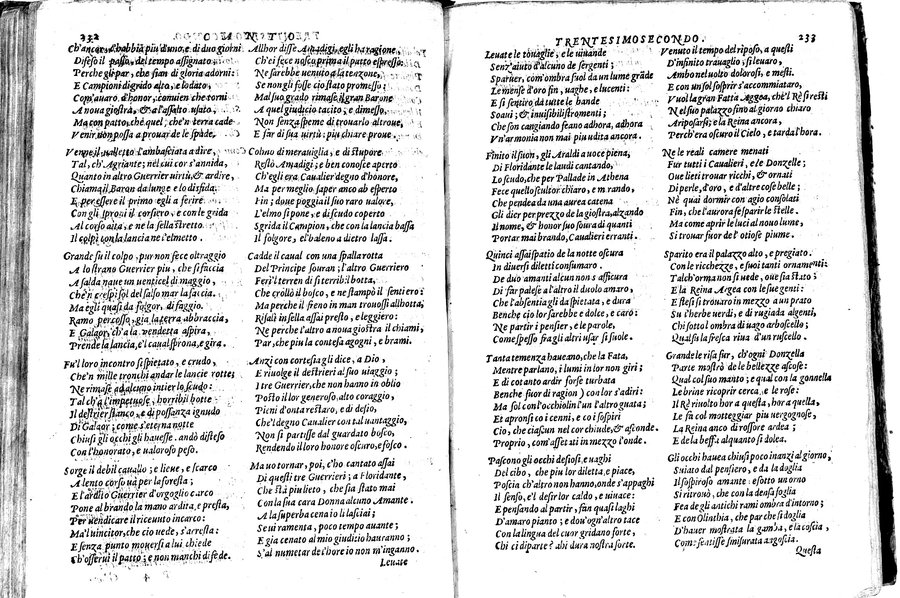 232
Ch'ancor ch'habbia piu d'uno, e di duo giorni
Difeso il passo, del tempo assignato;
Perche gli par, che sian di gloria adorni:
E Campioni di grido alto, e lodato,
Com'auaro d'honor, conuien che torni
A noua giostra, & a l'assalto usato;
Ma con patto, che quel, che'n terra cade
Venir non possa a prouar de le spade.
Venne il ualletto l'ambasciata a dire,
Tal, ch'Agriante; nel cui cor s'annida,
Quanto in altro Guerrier uirtù, & ardire,
Chiama il Baron da lunge e lo disfida:
E per essere il primo egli a ferire
Con gli sproni il corsiero, e con le grida
Al corso aita, e ne la sella stretto
Il colpì con la lancia ne l'elmetto.
Grande fu il colpo, pur non fece oltraggio
A lo strano Guerrier piu, che si faccia
A salda naue un uenticel di maggio,
Che'n crespi sol del salso mar la faccia.
Ma egli quasi da folgor, di faggio
Ramo percosso, gia la terra abbraccia,
E Galaor, ch'a la uendetta aspira,
Prende la lancia, e'l caual sprona, e gira.
Fu'l loro incontro si spietato, e crudo,
Che'n mille tronchi andar le lancie rotte;
Ne rimase ad alcuno intier lo scudo:
Tal ch'a l'impetuose, horribil botte
Il destrier stanco, e di possanza ignudo
Di Galaor; come s'eterna notte
Chiusi gli occhi gli hauesse. andò disteso
Con l'honorato, e ualoroso peso.
Sorge il debil cauallo; e lieue, e scarco
A lento corso uà per la foresta;
E l'ardito Guerrier d'orgoglio carco
Pone al brando la mano ardita, e presta,
Per uendicare il riceuuto incarco:
Ma l'uincitor, che ciò uede, s'arresta:
E senza punto mouersi a lui chiede
Ch'osserui il patto; e non manchi di fede.
Allhor disse Amadigi, egli ha ragione,
Ch'ei fece nosco prima il patto espresso:
Ne sarebbe uenuto a la tenzone,
Se non gli fosse ciò stato promesso:
Mal suo grado rimase il gran Barone
A quel giudicio tacito; e dimesso,
Non senza speme di trouarlo altroue,
E far di sua uirtù; piu chiare proue.
Colmo di merauiglia, e di stupore
Restò Amadigi; e ben conosce aperto
Ch'egli era Caualier degno d'honore,
Ma per meglio saper anco ab esperto
Fin; doue poggia il suo raro ualore,
L'elmo si pone, e di scudo coperto
Sgrida il Campion, che con la lancia bassa
Il folgore, e'l baleno a dietro lassa.
Cadde il caual con una spalla rotta
Del Principe souran; l'altro Guerriero
Ferì'l terren di si terribil botta,
Che crollò il bosco, e ne stampò il sentiero:
Ma perche il freno in man trouossi allhotta,
Risalì in sella assai presto, e leggiero:
Ne perche l'altro a noua giostra il chiami,
Par, che piu la contesa agogni, e brami.
Anzi con cortesia gli dice, a Dio,
E riuolge il destrieri al suo uiaggio;
I tre Guerrier, che non hanno in oblio
Posto il lor generoso, alto coraggio,
Pieni d'onta restaro, e di desio,
Che'l degno Caualier con tal uantaggio,
Non si partisse dal guardato bosco,
Rendendo il loro honore oscuro, e fosco.
Ma uo tornar, poi, c'ho cantato assai
Di questi tre Guerrieri; a Floridante,
Che stà piu lieto, che sia stato mai
Con la sua cara Donna alcuno Amante.
A la superba cena io li lasciai;
Se ui ramenta, poco tempo auante;
E gia cenato al mio giudicio hauranno;
S'al numetar de l'hore io non m'inganno.
Leuate
TRENTESIMOSECONDO.
233
Leuate le touaglie, e le uiuande
Senz'aiuto d'alcuno de sergenti;
Sparuer, com'ombra suol da un lume grãde
Le mense d'oro fin, uaghe, e lucenti:
E si sentiro da tutte le bande
Soaui; & inuisibil stromenti;
Che son cangiando feano adhora, adhora
Vn'armonia non mai piu udita ancora.
Finito il suon, gli Araldi a uoce piena,
Di Floridante le laudi cantando,
Lo scudo, che per Pallade in Athena
Fece quello scultor chiaro, e mirando,
Che pendea da una aurea catena
Gli dier per prezzo de la giostra, alzando
Il nome, & l'honor suo soura di quanti
Portar mai brando, Caualieri erranti.
Quinci assai spatio de la notte oscura
In diuersi diletti consumaro.
De duo amanti alcun non s'assicura
Di far palese a l'altro il duolo amaro,
Che l'absentia gli da spietata, e dura
Benche ciò lor sarebbe e dolce, e caro:
Ne partir i pensier, e le parole,
Come spesso fra gli altri usar si suole.
Tanta temenza haueano, che la Fata,
Mentre parlano, i lumi in lor non giri;
E di cotanto ardir forse turbata
Benche fuor di ragion) con lor s'adiri:
Ma sol con l'occhiolin l'un l'altro guata;
Et apronsi co i cenni, e co i sospiri
Ciò, che ciascun nel cor chiude, & asconde.
Proprio, com'assetati in mezzo l'onde.
Pascono gli occhi desiosi, e uaghi
Del cibo, che piu lor diletta, e piace,
Poscia ch'altro non hanno, onde s'appaghi
Il senso, e'l desir lor caldo, e uiuace:
E pensando al partir, fan quasi laghi
D'amaro pianto; e dou'ogn'altro tace
Con la lingua del cuor gridano forte,
Chi ci diparte? ahi dura nostra sorte.
Venuto il tempo del riposo, a questi
D'infinito trauaglio, si leuaro,
Ambo nel uolto dolorosi, e mesti.
E con un sol sospir s'accommiataro,
Vuol la gran Fatta Argea, che'l Rè si resti
Nel suo palazzo fino al giorno chiaro
A riposarsi; e la Reina ancora,
Perch'era oscuro il Cielo, e tarda l'hora.
Ne le reali camere menati
Fur tutti i Caualieri, e le Donzelle;
Oue lieti trouar ricchi, & ornati
Di perle, d'oro, e d'altre cose belle;
Nè quai dormir con agio consolati
Fin, che l'aurora fè sparir le stelle.
Ma come aprir le luci al nouo lume,
Si trouar fuor de l'otiose piume.
Sparito era il palazzo alto, e pregiato.
Con le ricchezze, e suoi tanti ornamenti:
Talch'orma non si uede, oue sia stato;
E la Reina Argea con le sue genti:
E stessi si trouaro in mezzo a un prato
Su l'herbe uerdi, e di rugiada algenti,
Chi sotto l'ombra di uago arboscello;
Qual su la fresca riua d'un ruscello.
Grande le risa fur, ch'ogni Donzella
Parte mostrò de le bellezze ascose:
Qual col suo manto; e qual con la gonnella
Le brine ricoprir cerca, e le rose:
Il Rè riuolto hor a questa, hor a quella,
Le fa col motteggiar piu uergognose,
La Reina anco di rossore ardea;
E de la beffa alquanto si dolea.
Gli occhi hauea chiusi poco inanzi al giorno,
Suiato dal pensiero, e da la doglia
Il sospiroso amante: e sotto un orno
Si ritrouò, che con la densa foglia
Fea de gli antichi rami ombra d'intorno;
E con Olinthia, che par che si doglia
D'hauer mostrata la gamba, e la coscia,
Come sentisse smisurata angoscia.
Questa